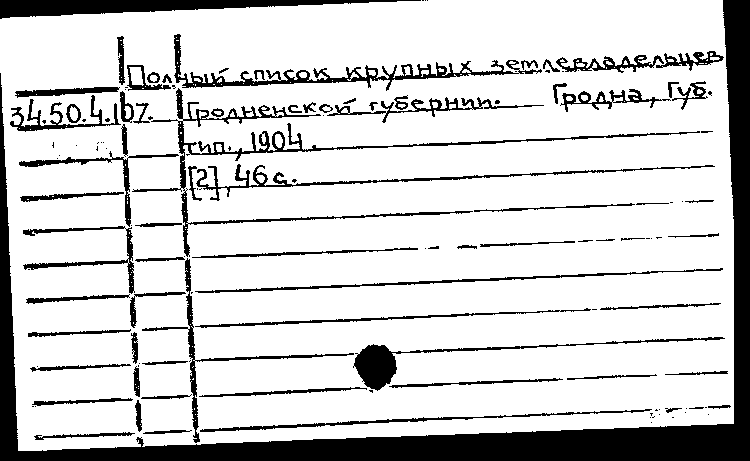 Полный список крупных землевладельцев
34.50.4.107. Гродненской губернии. Гродна, Губ.
тип., 1904.
[2], 46 с.